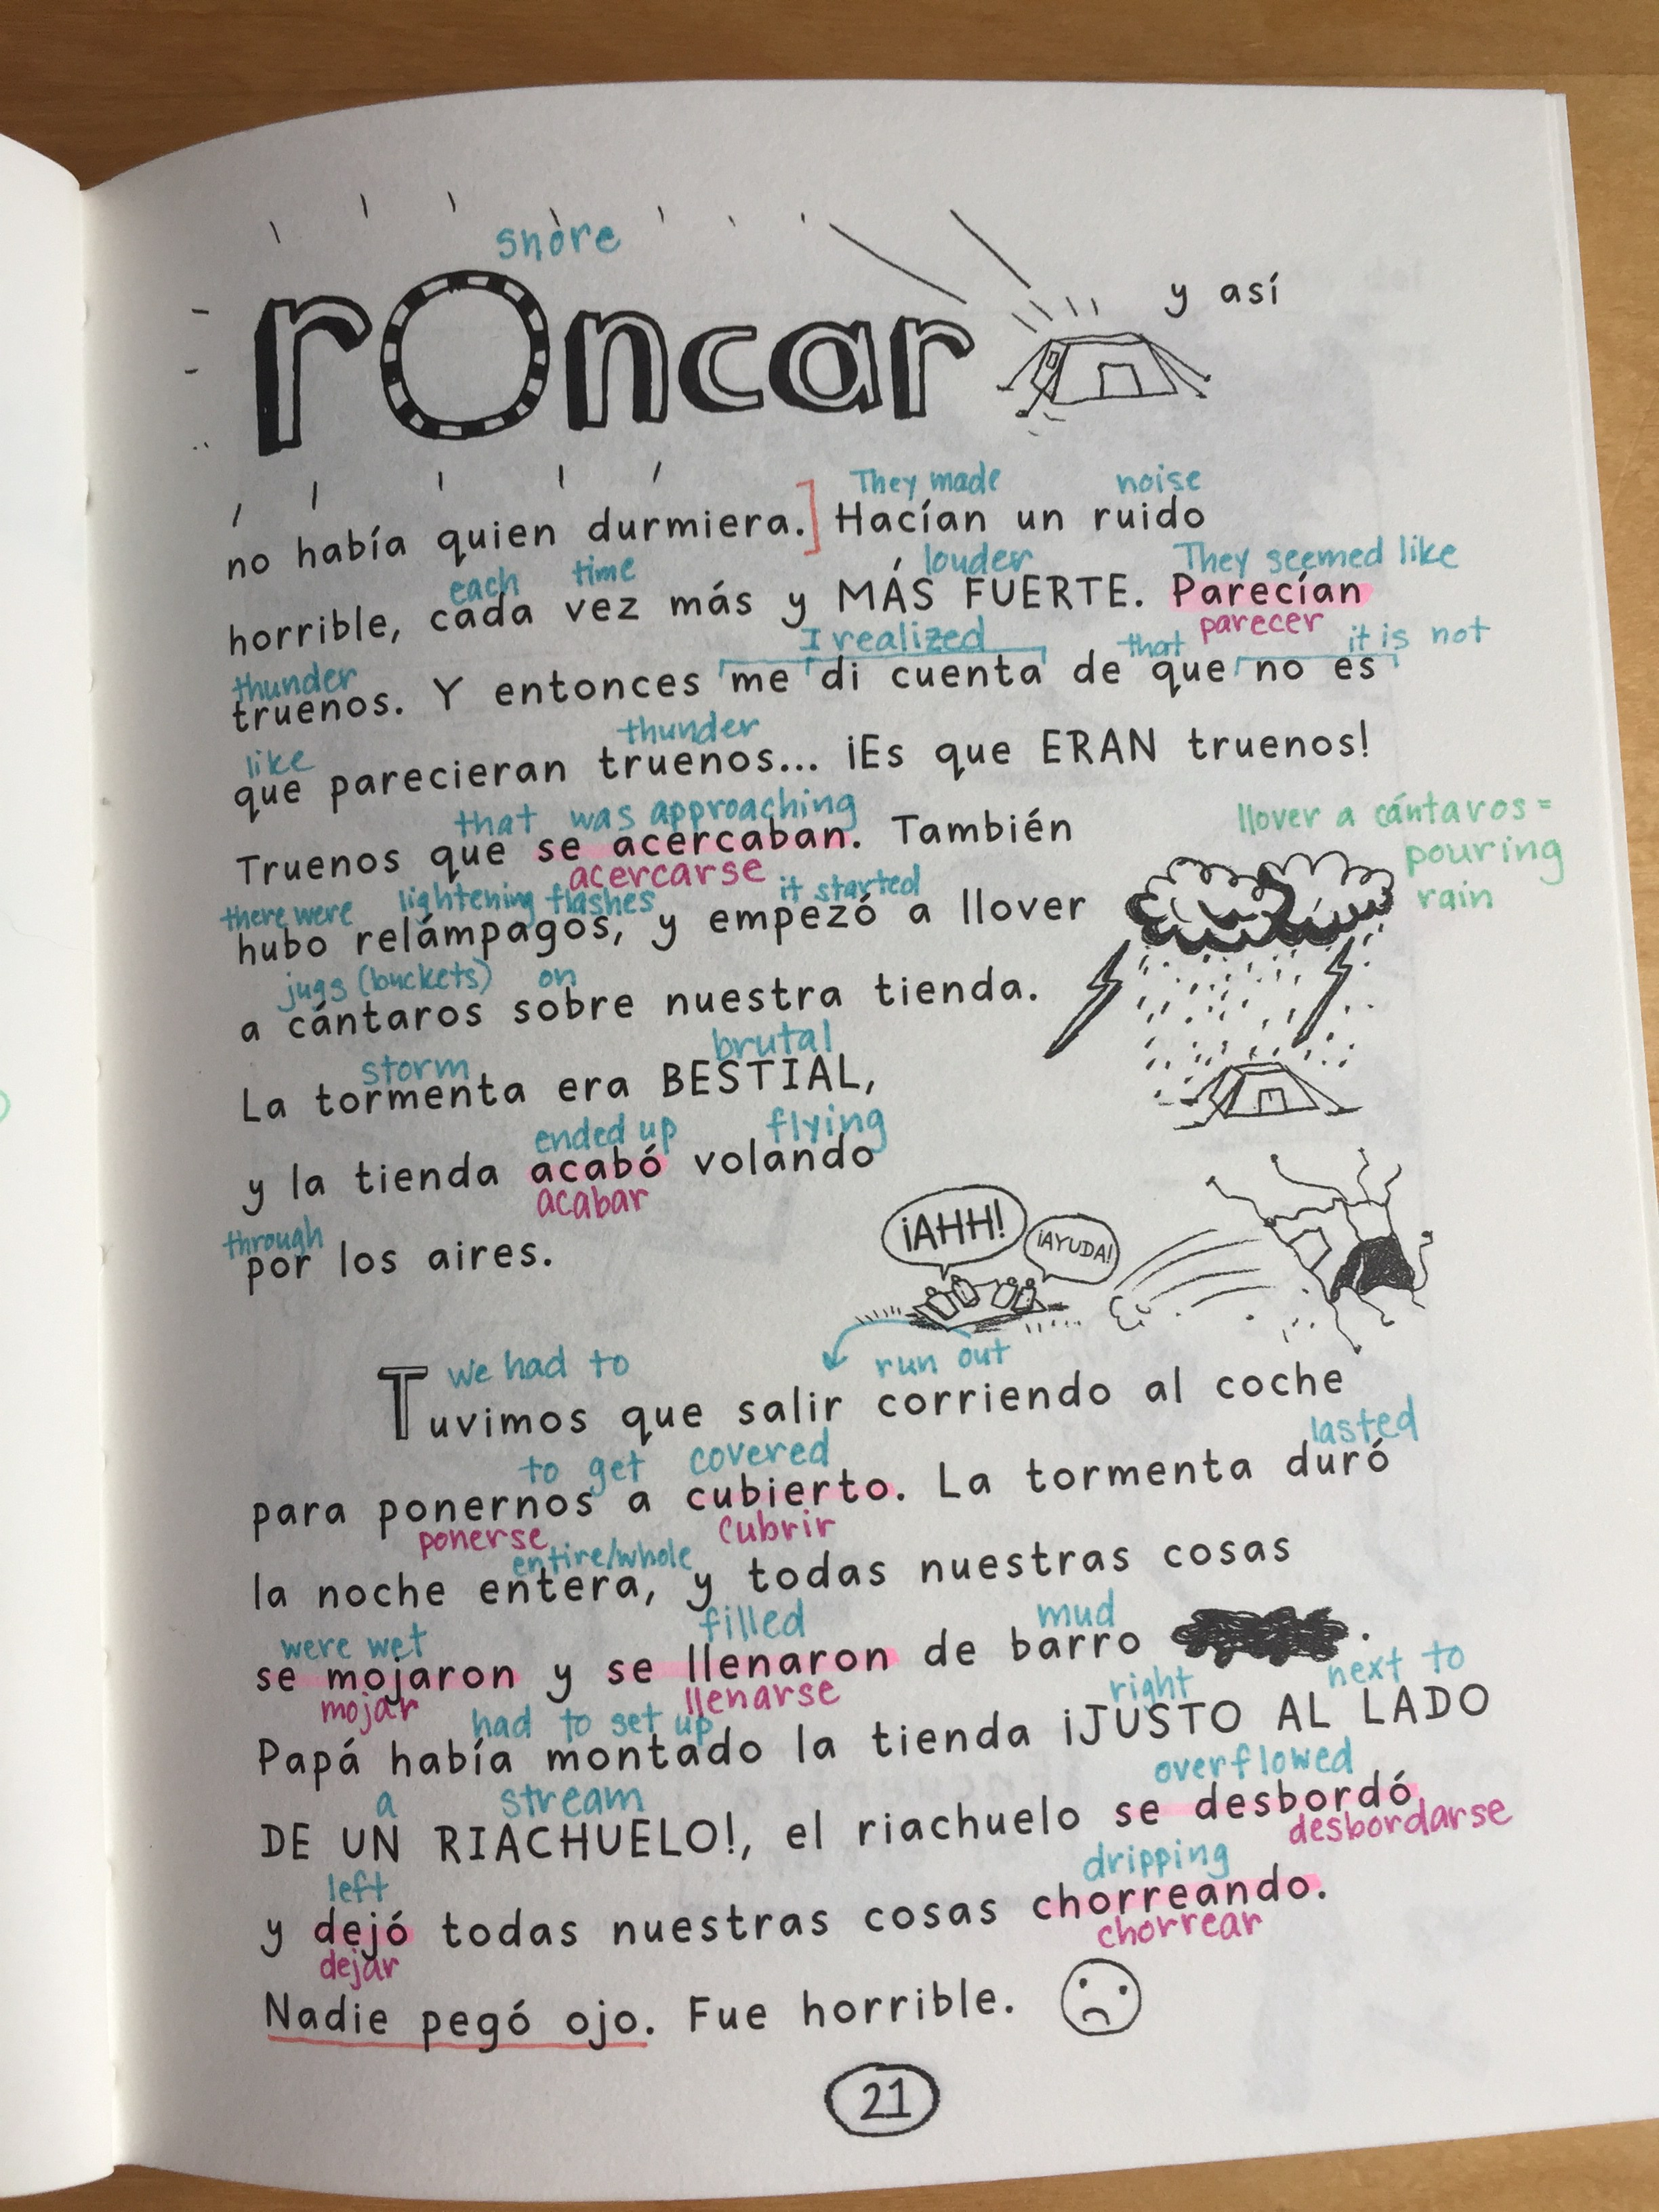 snore
roncar y así
They made noise
no había quien durmiera.] Hacían un ruido
each time louder They seemed like
horrible, cada vez más y MÁS FUERTE. Parecían
parecer
I realized that it is not
thunder
truenos. Y entonces me di cuenta de que no es
like thunder
que parecieran truenos... ¡Es que ERAN truenos!
that was approaching
Truenos que se acercaban. También
acercarse
llover a cántaros =
pouring
rain
there were lightening flashes it started
hubo relámpagos, y empezó a llover
jugs (buckets) on
a cántaros sobre nuestra tienda.
storm brutal
La tormenta era BESTIAL,
ended up flying
y la tienda acabó volando
acabar
through
por los aires.
¡AHH!
¡AYUDA!
we had to run out
Tuvimos que salir corriendo al coche
to get covered lasted
para ponernos a cubierto. La tormenta duró
ponerse cubrir
entire/whole
la noche entera, y todas nuestras cosas
were wet filled mud
se mojaron y se llenaron de barro .
mojar llenarse
had to set up right next to
Papá había montado la tienda ¡JUSTO AL LADO
a stream overflowed
DE UN RIACHUELO!, el riachuelo se desbordó
desbordarse
left dripping
y dejó todas nuestras cosas chorreando.
dejar chorrear
Nadie pegó ojo. Fue horrible.
21